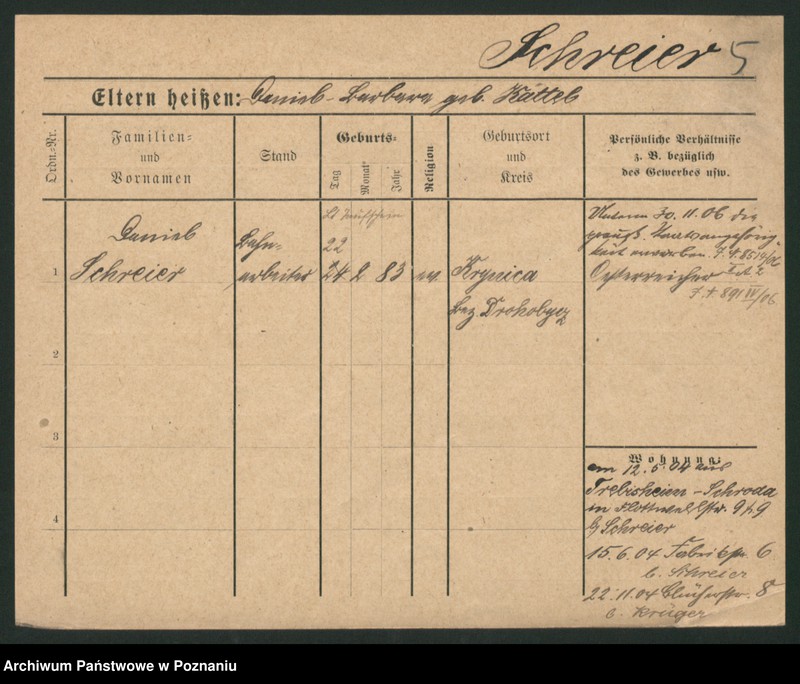 Schreier 5
Eltern heißen: Daniel - Barbara geb. Küttel
Ordn.-Nr.
Familien-
und
Vornamen
Stand
Geburts-
Tag
Monat
Jahr
Religion
Geburtsort
und
Kreis
Persönliche Verhältnisse
z. B. bezüglich
des Gewerbes usw.
1
Daniel
Schreier
Bahn-
arbeiter
22
24 2 83
ev.
Krynica
Bez. Drohobycz
Unterm 30.11.06 die
preuß. Staatsangehörig-
keit erworben. J.+.8514/06
Oesterreicher
J.+.891 IV/06
2
3
4
Wohnung:
am 12.5.04 aus
Trebisheim - Schroda
in Flottwellstr. 9
b/ Schreier
15.6.04 Fabrikstr. 6
b. Schreier
22.11.04 Blücherstr. 8
b. Krüger
Archiwum Państwowe w Poznaniu